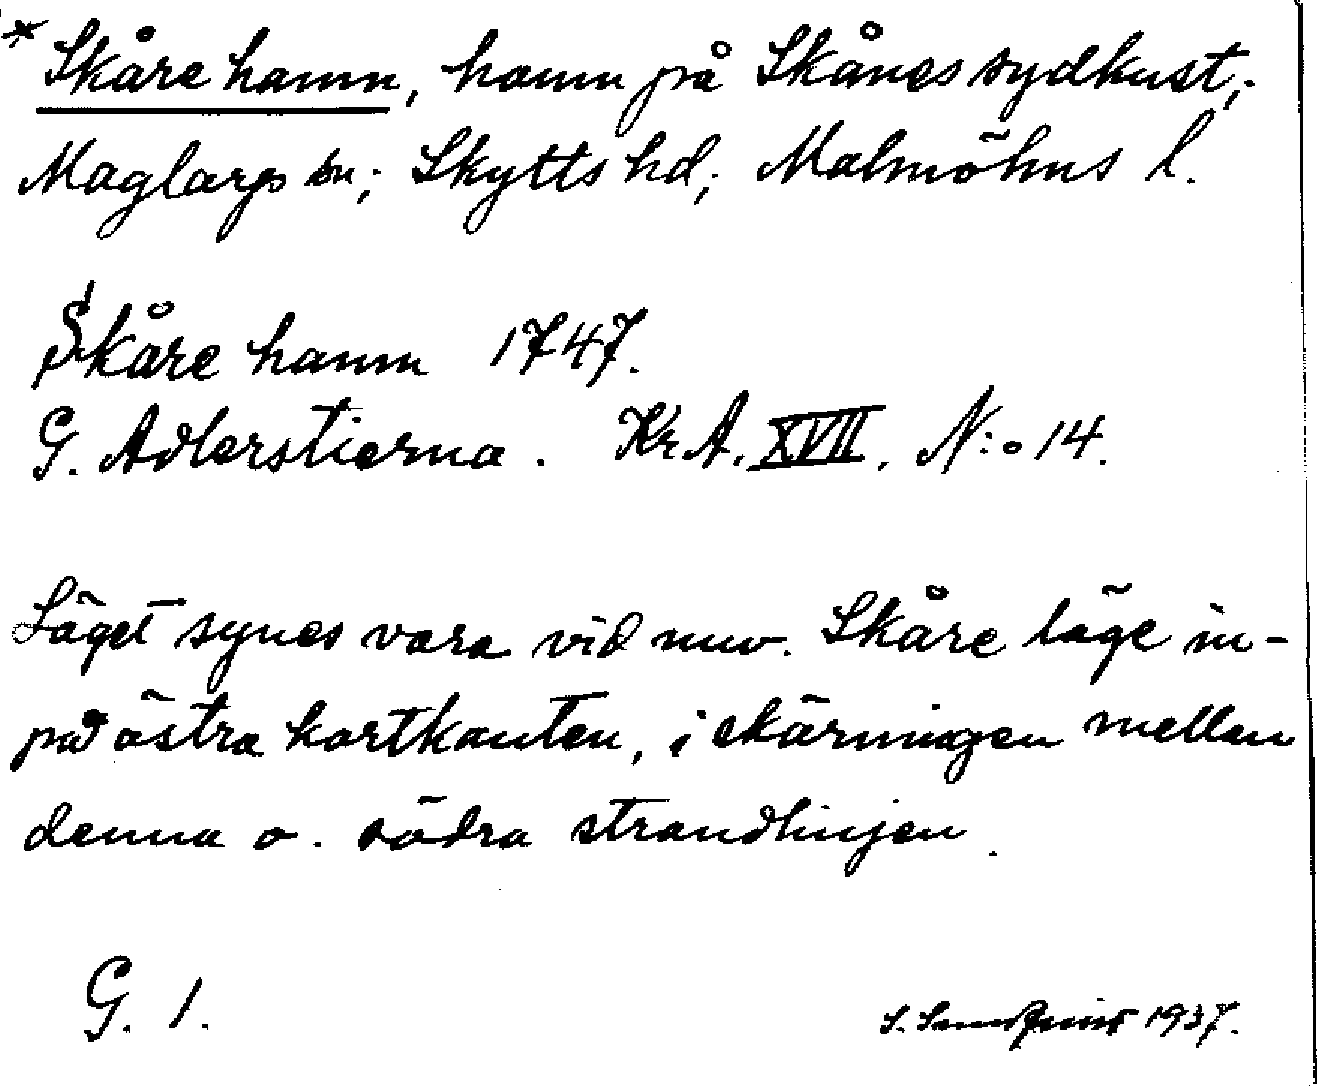 * Skåre hamn, hamn på Skånes sydkust;
Maglarps sn; Skytts hd; Malmöhus l.
Skåre hamn 1747.
G. Adlerstierna. Kr A. XVII. N:o 14.
Läget synes vara vid nuv. Skåre läge in-
på östra kortkanten, i skärningen mellan
denna o. södra strandlinjen.
G. 1.
S. 1937.